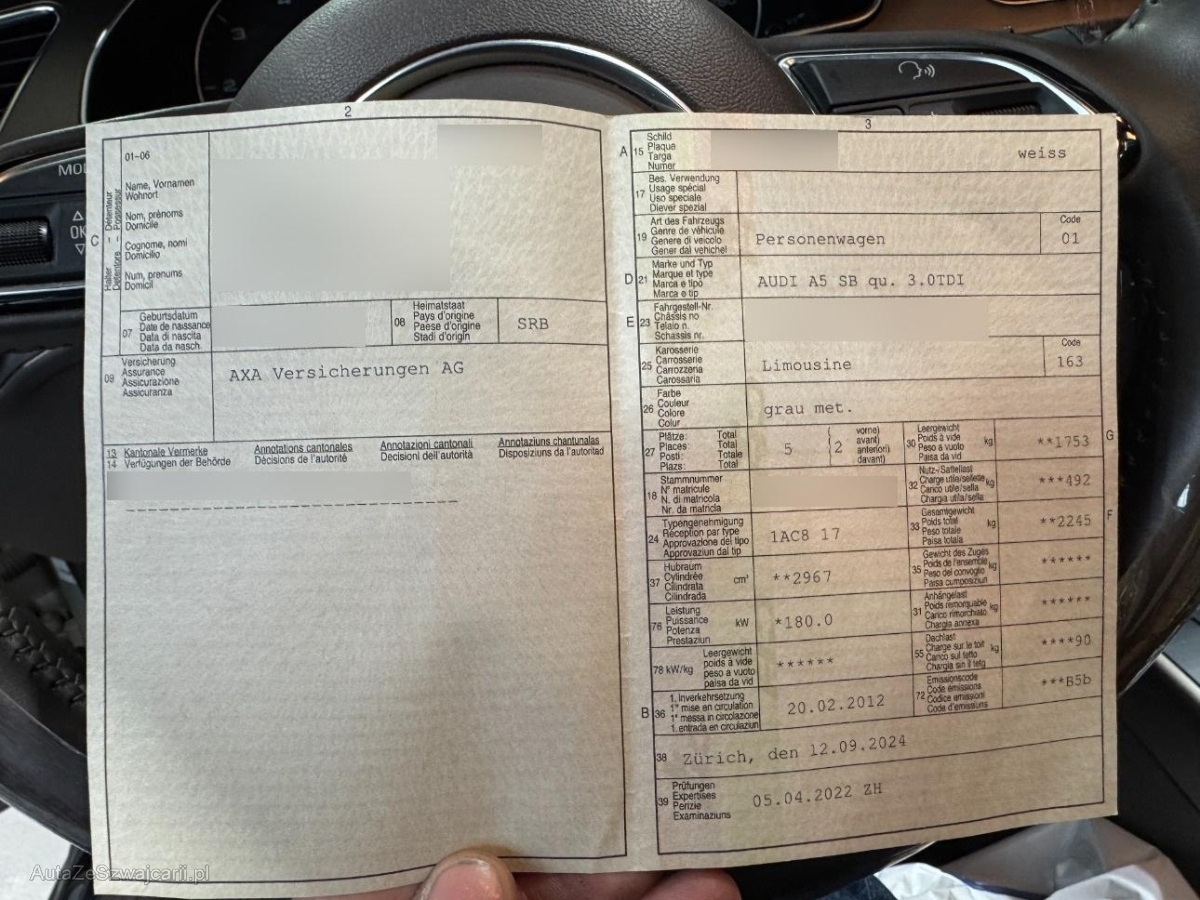 2
01-06
Name, Vornamen
Wohnort
Nom, prénoms
Domicile
Cognome, nomi
Domicilio
Num, prenums
Domicil
C
Halter – Détenteur
Detentore – Possessur
07
Geburtsdatum
Date de naissance
Data di nascita
Data da nasch.
08
Heimatstaat
Pays d'origine
Paese d'origine
Stadi d'origin
SRB
09
Versicherung
Assurance
Assicurazione
Assicuranza
AXA Versicherungen AG
13 Kantonale Vermerke Annotations cantonales Annotazioni cantonali Annotaziuns chantunalas
14 Verfügungen der Behörde Décisions de l'autorité Decisioni dell'autorità Disposiziuns da l'autoritad
3
A 15
Schild
Plaque
Targa
Numer
weiss
17
Bes. Verwendung
Usage spécial
Uso speciale
Diever spezial
19
Art des Fahrzeugs
Genre de véhicule
Genere di veicolo
Gener dal vehichel
Personenwagen
Code
01
D 21
Marke und Typ
Marque et type
Marca e tipo
Marca e tip
AUDI A5 SB qu. 3.0TDI
E 23
Fahrgestell-Nr.
Châssis no
Telaio n.
Schassis nr.
25
Karosserie
Carrosserie
Carrozzeria
Carossaria
Limousine
Code
163
26
Farbe
Couleur
Colore
Colur
grau met.
27
Plätze: Total
Places: Total
Posti: Totale
Plazs: Total
5
2
vorne)
avant)
anteriori)
davant)
30
Leergewicht
Poids à vide
Peso a vuoto
Paisa da vid
kg
**1753
G
18
Stammnummer
N° matricule
N. di matricola
Nr. da matricla
32
Nutz-/Sattellast
Charge utile/sellette
Carico utile/sella
Chargia utila/sella
kg
***492
24
Typengenehmigung
Réception par type
Approvazione del tipo
Approvaziun dal tip
1AC8 17
33
Gesamtgewicht
Poids total
Peso totale
Paisa totala
kg
**2245
F
37
Hubraum
Cylindrée
Cilindrata
Cilindrada
cm³
**2967
35
Gewicht des Zuges
Poids de l'ensemble
Peso del convoglio
Paisa cumposiziun
kg
******
76
Leistung
Puissance
Potenza
Prestaziun
kW
*180.0
31
Anhängelast
Poids remorquable
Carico rimorchiato
Chargia annexa
kg
******
78 kW/kg
Leergewicht
poids à vide
peso a vuoto
paisa da vid
******
55
Dachlast
Charge sur le toit
Carico sul tetto
Chargia sin il tetg
kg
****90
B 36
1. Inverkehrsetzung
1re mise en circulation
1a messa in circolazione
1. entrada en circulaziun
20.02.2012
72
Emissionscode
Code émissions
Codice emissioni
Code d'emissiuns
***B5b
38
Zürich, den 12.09.2024
39
Prüfungen
Expertises
Perizie
Examinaziuns
05.04.2022 ZH
OK
AutaZeSzwajcarii.pl